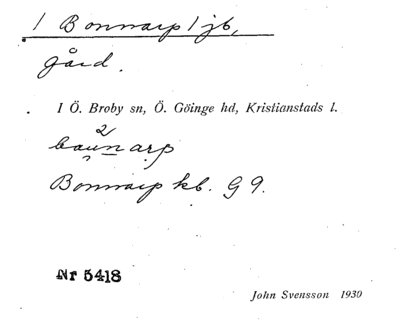 1 Bonnarp 1 jb,
gård.
I Ö. Broby sn, Ö. Göinge hd, Kristianstads l.
Bonnarp kb. G 9.
Nr 5418
John Svensson 1930